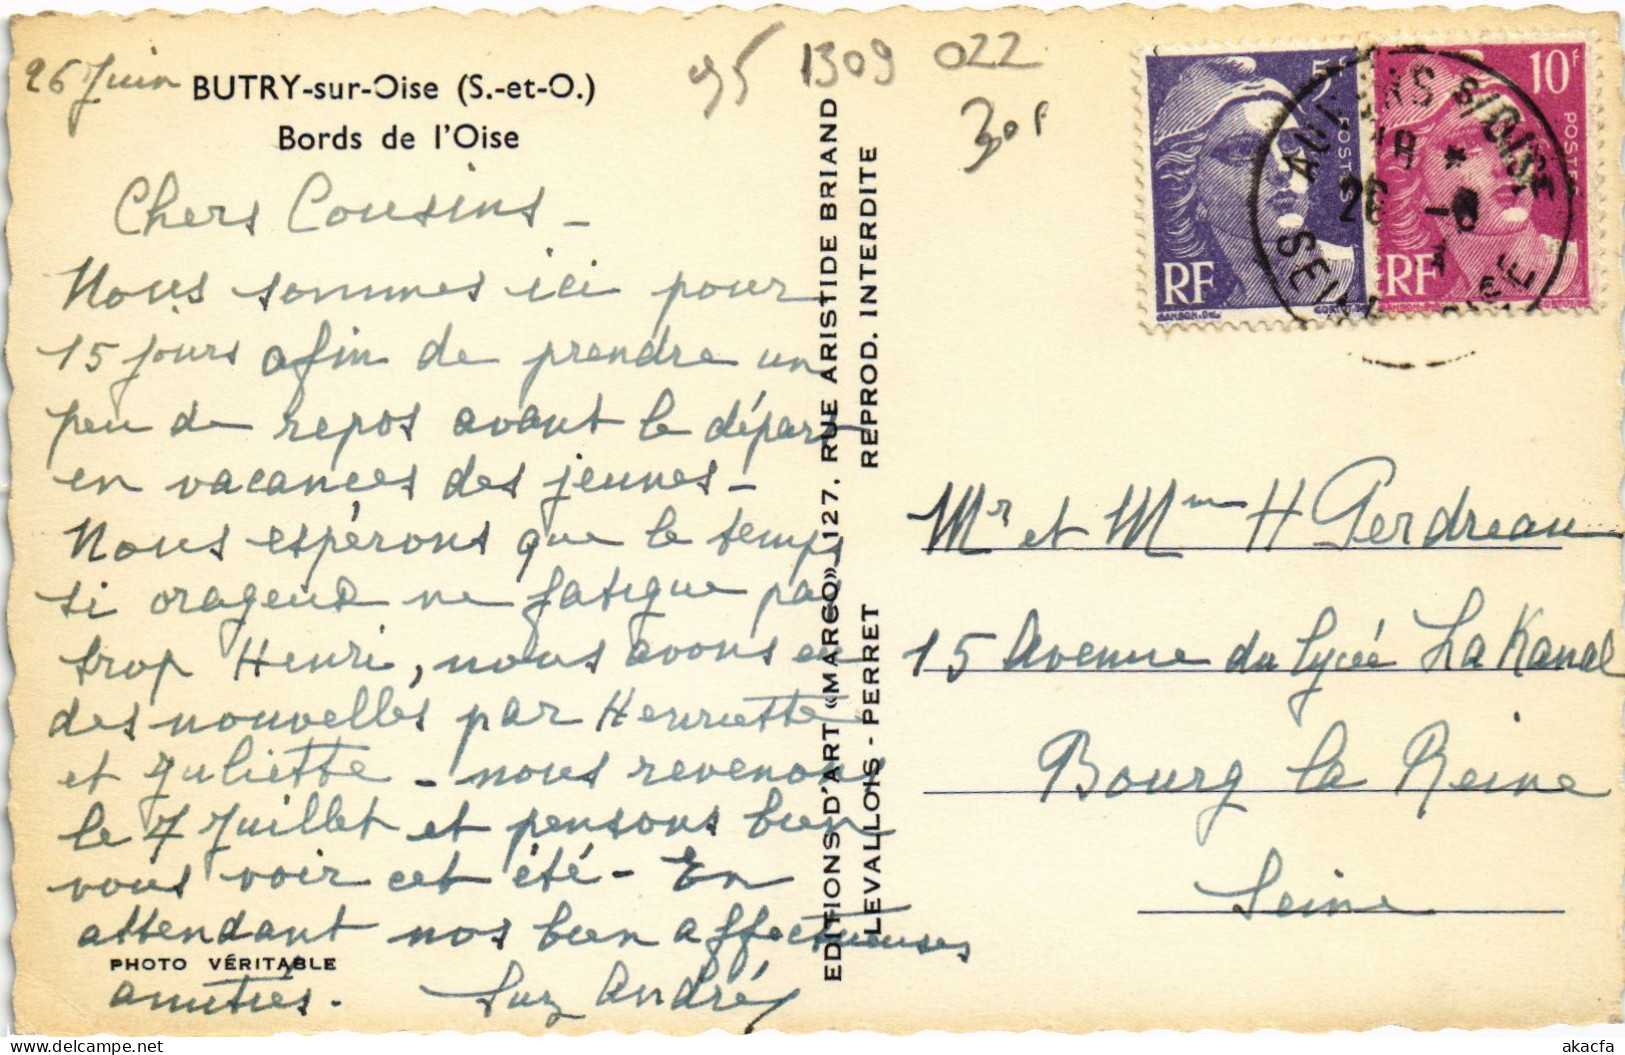 26 Juin
BUTRY-sur-Oise (S.-et-O.)
Bords de l'Oise
95 1309 022
30F
Chers Cousins _
Nous sommes ici pour
15 jours afin de prendre un
peu de repos avant le départ
en vacances des jeunes _
Nous espérons que le temps
si orageux ne fatigue pas
trop Henri, nous avons eu
des nouvelles par Henriette
et Juliette _ nous revenons
le 7 Juillet et pensons bien
vous voir cet été - En
attendant nos bien affectueuses
amitiés. Suz André
PHOTO VÉRITABLE
EDITIONS D'ART «MARCO» 127, RUE ARISTIDE BRIAND
LEVALLOIS - PERRET REPROD. INTERDITE
5F
POSTES
RF
GANDON.DEL
10F
POSTES
RF
AUVERS S/OISE
18 *
26 -6
SEINE ET OISE
Mr et Mme H Perdreau
15 Avenue du lycée La Kanal
Bourg la Reine
Seine
akacfa